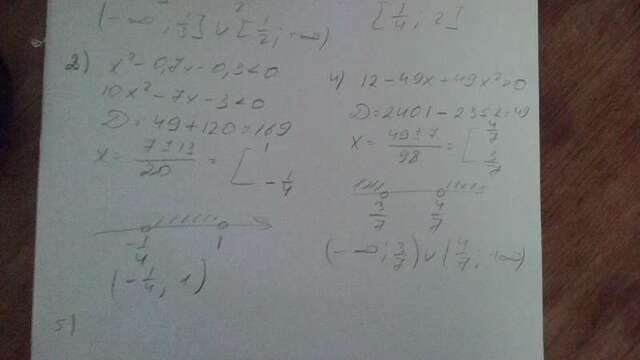 (-∞; 1/3] ∪ [1/2; +∞)
[1/4; 2]
2) x² - 0,7x - 0,3 < 0
10x² - 7x - 3 < 0
D = 49 + 120 = 169
x = (7 ± 13)/20 = [ 1
- 1/4
- 1/4 1
(- 1/4; 1)
4) 12 - 49x + 49x² > 0
D = 2401 - 2352 = 49
x = (49 ± 7)/98 = [ 4/7
3/7
3/7 4/7
(-∞; 3/7) ∪ (4/7; +∞)
5)